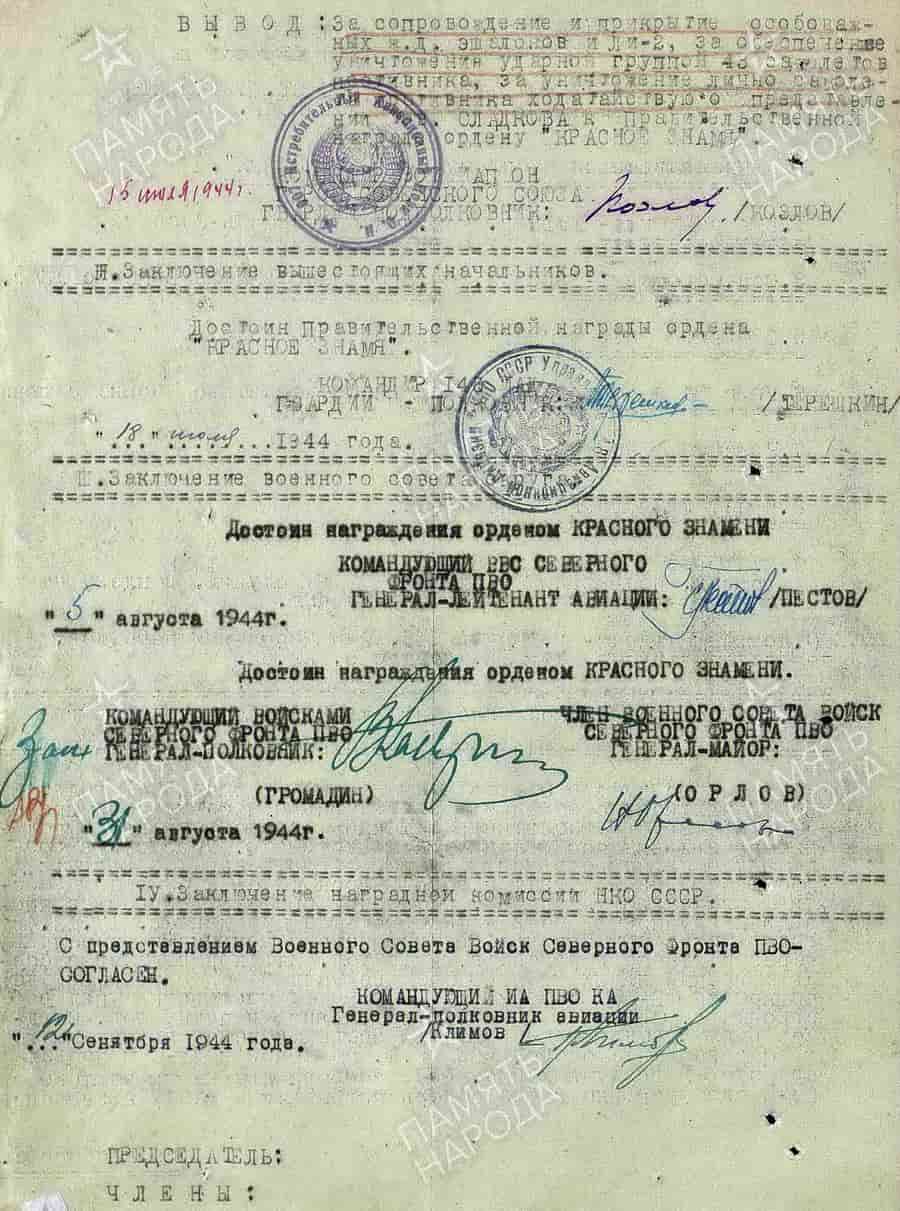 ВЫВОД: За сопровождение и прикрытие особоваж-
ных ж.д. эшалонов и Ли-2, за обеспечение
уничтожения ударной группой 43 самолетов
за уничтожение лично
ходатайствую о представле-
нии СЛАДКОВА к Правительственной
награде ордену "КРАСНОЕ ЗНАМЯ".
15 июля 1944г.
СОЮЗА
ПОЛКОВНИК: Козлов /КОЗЛОВ/
П. Заключение вышестоящих начальников.
Достоин Правительственной награды ордена
"КРАСНОЕ ЗНАМЯ".
КОМАНДИР
ГВАРДИИ /ТЕРЕШКИН/
"18" июля 1944 года.
Ш. Заключение военного совета
Достоин награждения орденом КРАСНОГО ЗНАМЕНИ
КОМАНДУЮЩИЙ ВВС СЕВЕРНОГО
ФРОНТА ПВО
ГЕНЕРАЛ-ЛЕЙТЕНАНТ АВИАЦИИ: /ПЕСТОВ/
"5" августа 1944г.
Достоин награждения орденом КРАСНОГО ЗНАМЕНИ.
КОМАНДУЮЩИЙ ВОЙСКАМИ
СЕВЕРНОГО ФРОНТА ПВО
ГЕНЕРАЛ-ПОЛКОВНИК:
(ГРОМАДИН)
ЧЛЕН ВОЕННОГО СОВЕТА ВОЙСК
СЕВЕРНОГО ФРОНТА ПВО
ГЕНЕРАЛ-МАЙОР:
(ОРЛОВ)
"31" августа 1944г.
IУ. Заключение наградной комиссии НКО СССР.
С представлением Военного Совета Войск Северного Фронта ПВО-
СОГЛАСЕН.
КОМАНДУЮЩИЙ ИА ПВО КА
Генерал-полковник авиации
/Климов
"12" Сенятбря 1944 года.
ПРЕДСЕДАТЕЛЬ:
ЧЛЕНЫ:
ПАМЯТЬ
НАРОДА